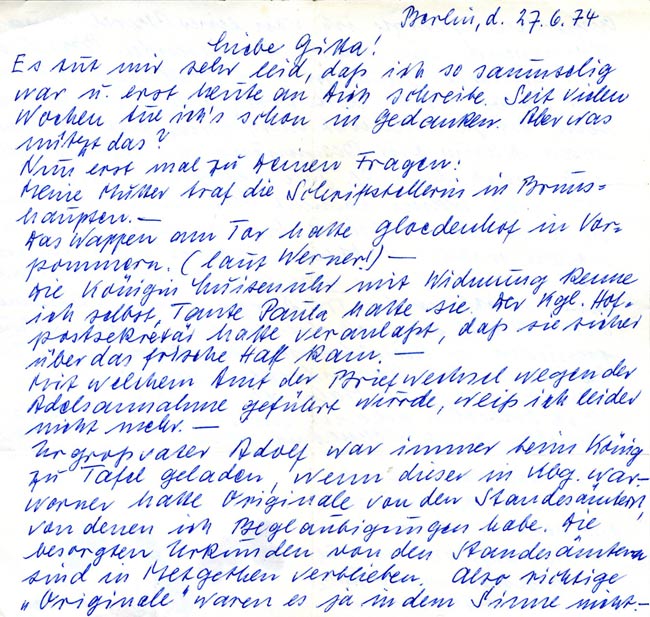 Berlin, d. 27.6.74
Liebe Gitta!
Es tut mir sehr leid, daß ich so saumselig
war u. erst heute an Dich schreibe. Seit vielen
Wochen tue ich's schon in Gedanken. Aber was
nützt das?
Nun erst mal zu Deinen Fragen:
Meine Mutter traf die Schriftstellerin in Bruns=
haupten.—
Das Wappen am Tor hatte Gloedenhof in Vor=
pommern. (laut Werner!) —
Die Königin Luisenuhr mit Widmung kenne
ich selbst, Tante Paula hatte sie. Der Kgl. Hof=
postsekretär hatte veranlaßt, daß sie sicher
über das frische Haff kam. —
Mit welchem Amt der Briefwechsel wegen der
Adelsannahme geführt wurde, weiß ich leider
nicht mehr. —
Urgroßvater Adolf war immer beim König
zu Tafel geladen, wenn dieser in Kbg. war—
Werner hatte Originale von den Standesämtern,
von denen ich Beglaubigungen habe. Die
besorgten Urkunden von den Standesämtern
sind in Metgethen verblieben. Also richtige
„Originale" waren es ja in dem Sinne nicht.—